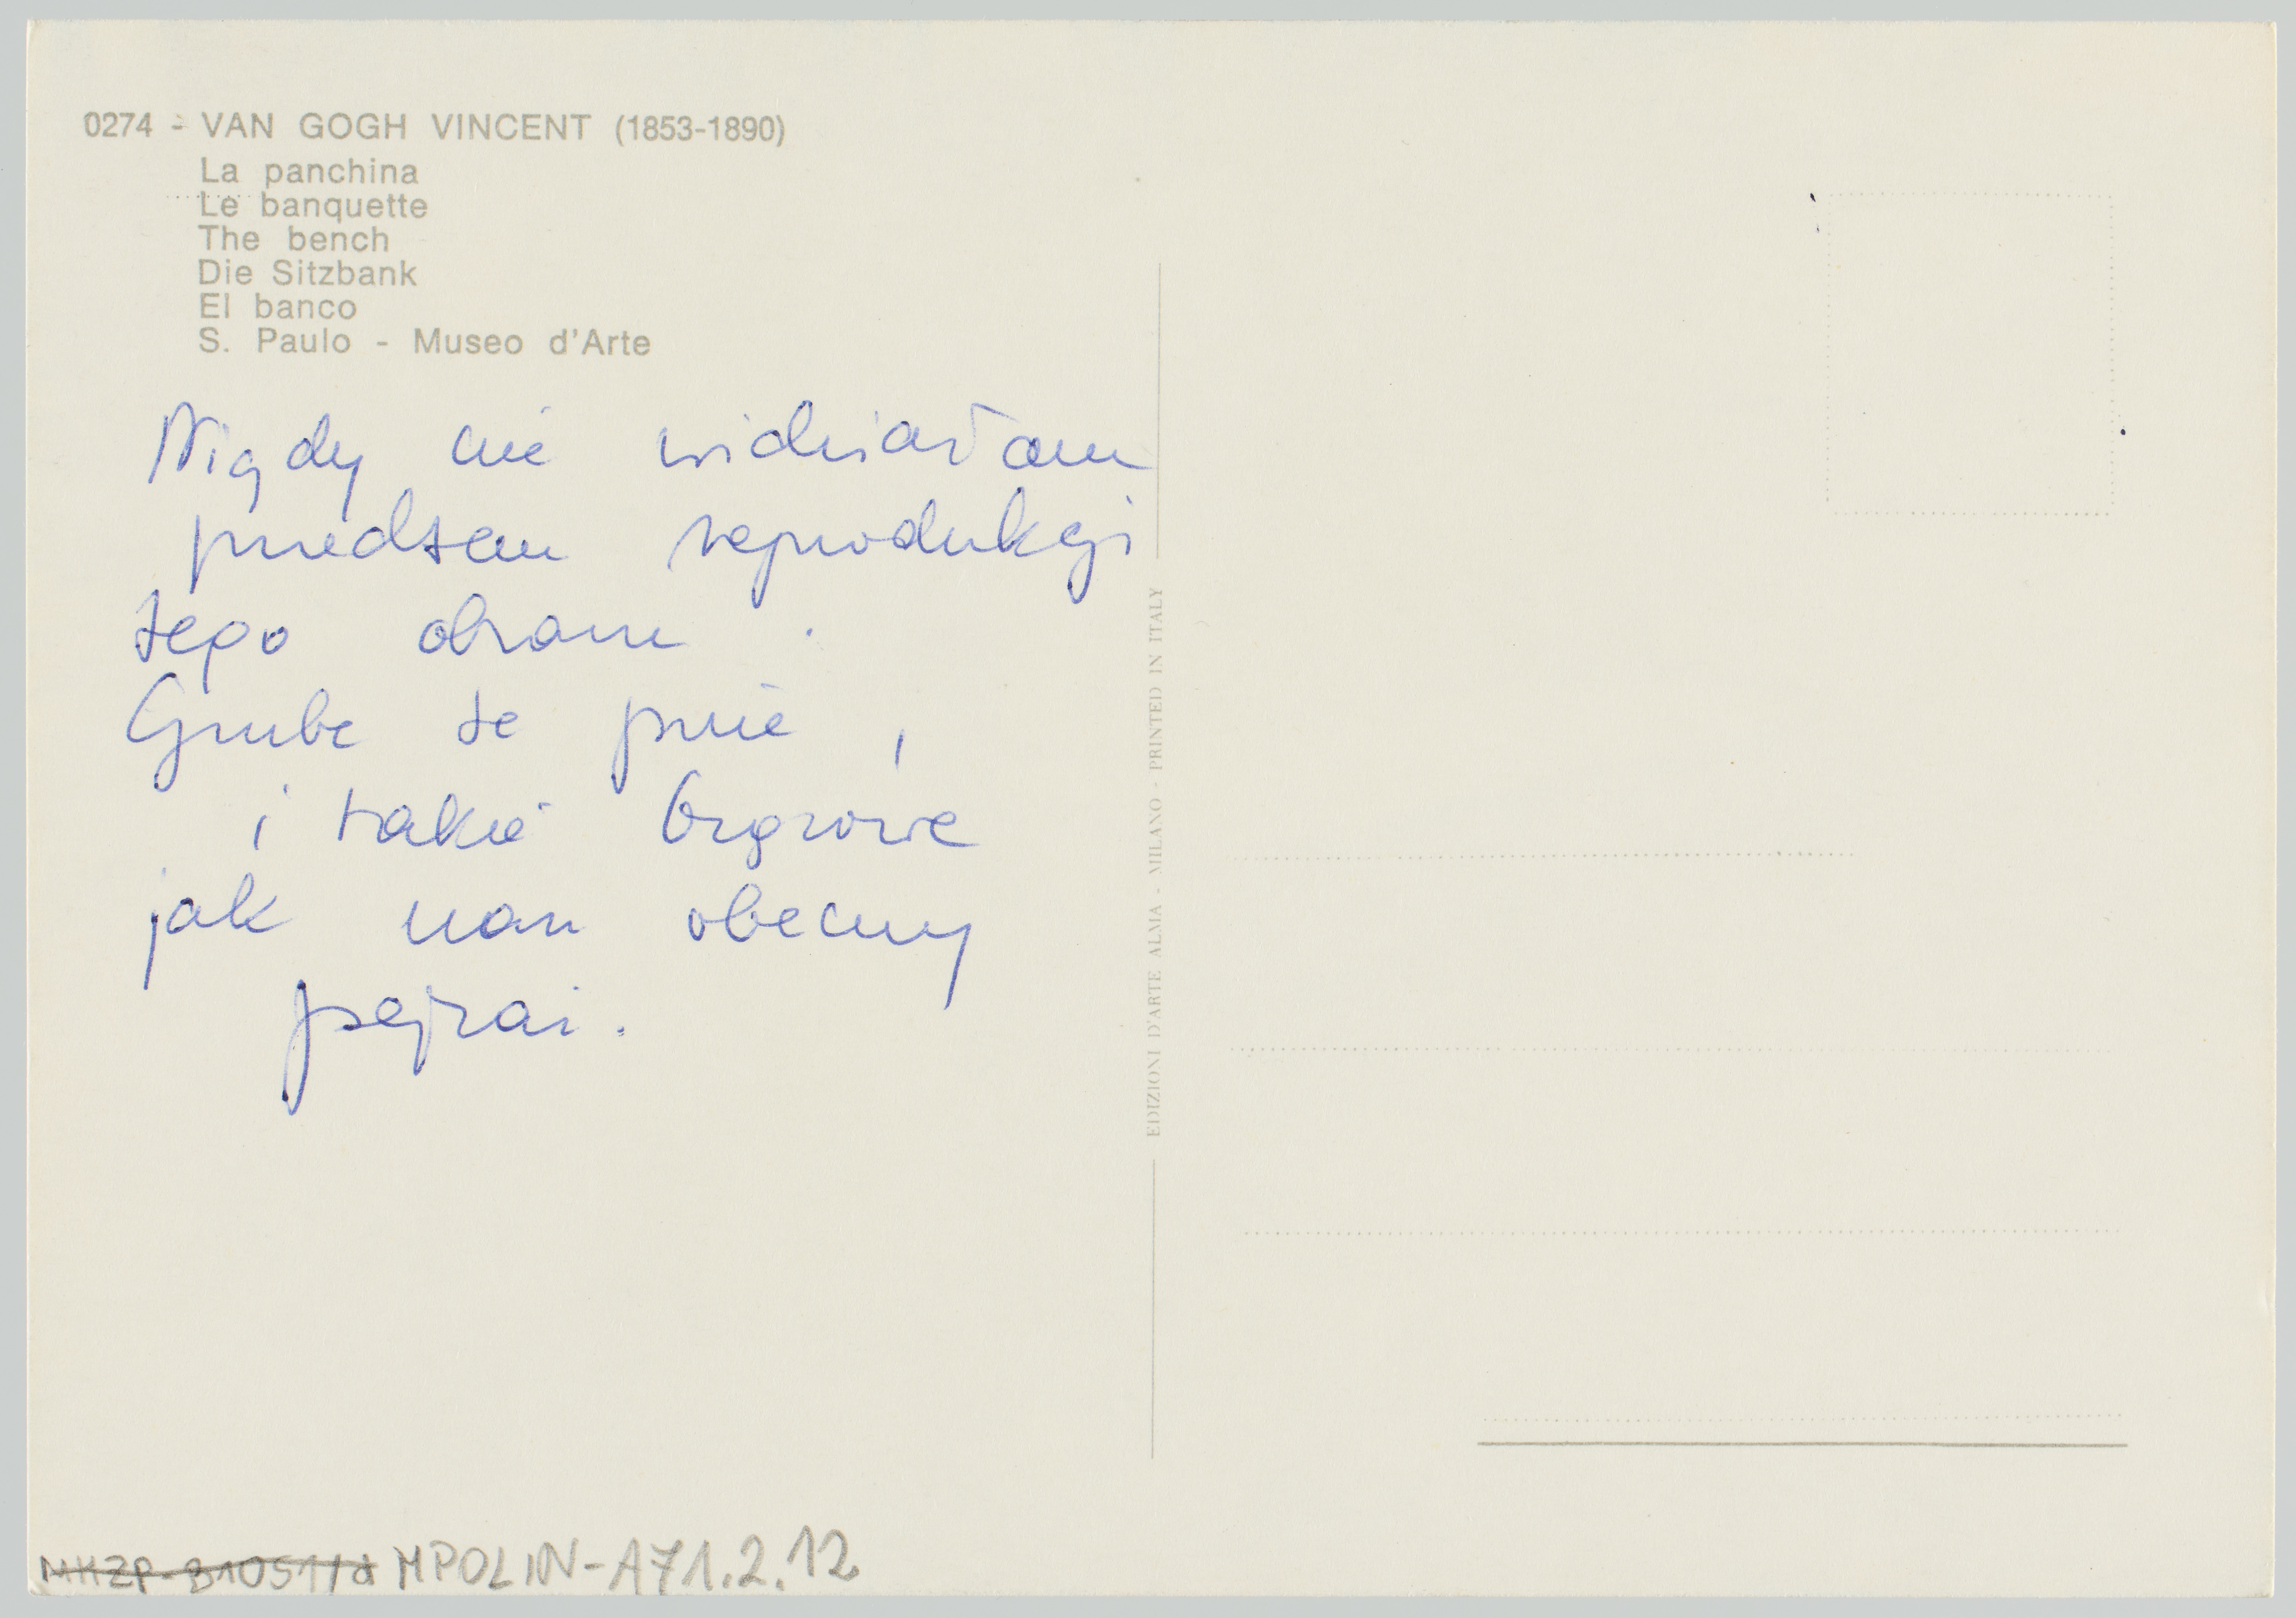 0274 - VAN GOGH VINCENT (1853-1890)
La panchina
Le banquette
The bench
Die Sitzbank
El banco
S. Paulo - Museo d'Arte
Nigdy nie widziałam
przedtem reprodukcji
tego obrazu.
Grube te pnie,
i takie brązowe
jak nasz obecny
pejzaż.
EDIZIONI D'ARTE ALMA - MILANO - PRINTED IN ITALY
MHZP-B1051/d MPOLIN-A71.2.12